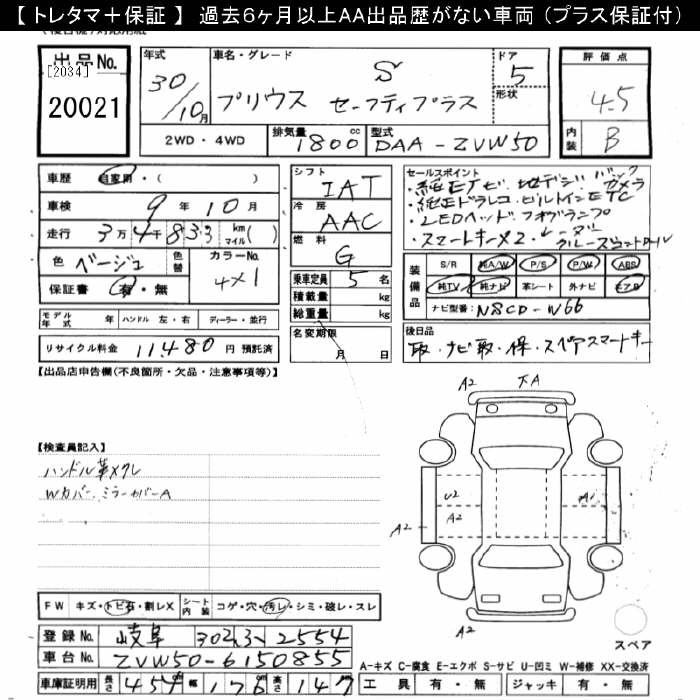 【 トレタマ＋保証 】 過去6ヶ月以上AA出品歴がない車両 (プラス保証付)
出品No.
[2034]
20021
年式 車名・グレード ドア 評価点
30/10月 プリウス S セーフティプラス 5 4.5
形状
2WD・4WD 排気量 1800 cc 型式 DAA-ZVW50 内装 B
車歴 自家用・( )
車検 9年 10月
走行 3万 4千 833 km マイル( )
色 ベージュ 色替 カラーNo. 4X1
保証書 有・無
シフト IAT
冷房 AAC
燃料 G
乗車定員 5 名
積載量 kg
総重量 kg
セールスポイント
・純正ナビ・地デジ・バックカメラ
・純正ドラレコ・ビルトインETC
・LEDヘッド・フォグランプ
・スマートキーX2・レーダークルーズコントロール
装備品 S/R 純A/W P/S P/W ABS
純TV 純ナビ 革シート 外ナビ エアB
ナビ型番: N8CD-W66
モデル年式 年 ハンドル 左・右 ディーラー・並行
リサイクル料金 11,480 円 預託済
名変期限 月 日
後日品
取・ナビ取・保・スペアスマートキー
【出品店申告欄(不良箇所・欠品・注意事項等)】
【検査員記入】
ハンドル革メクレ
Wカバー、ミラーカバーA
A2
A2
U2
A2
A1
A2
A2
スペア
FW キズ・トビ石・割レX シート内装 コゲ・穴・汚レ・シミ・破レ・スレ
登録No. 岐阜 302 2554
車台No. ZVW50-6150855
A-キズ C-腐食 E-エクボ S-サビ U-凹ミ W-補修 XX-交換済
車庫証明用 長さ 454 幅 176 高さ 147 工具 有・無 ジャッキ 有・無